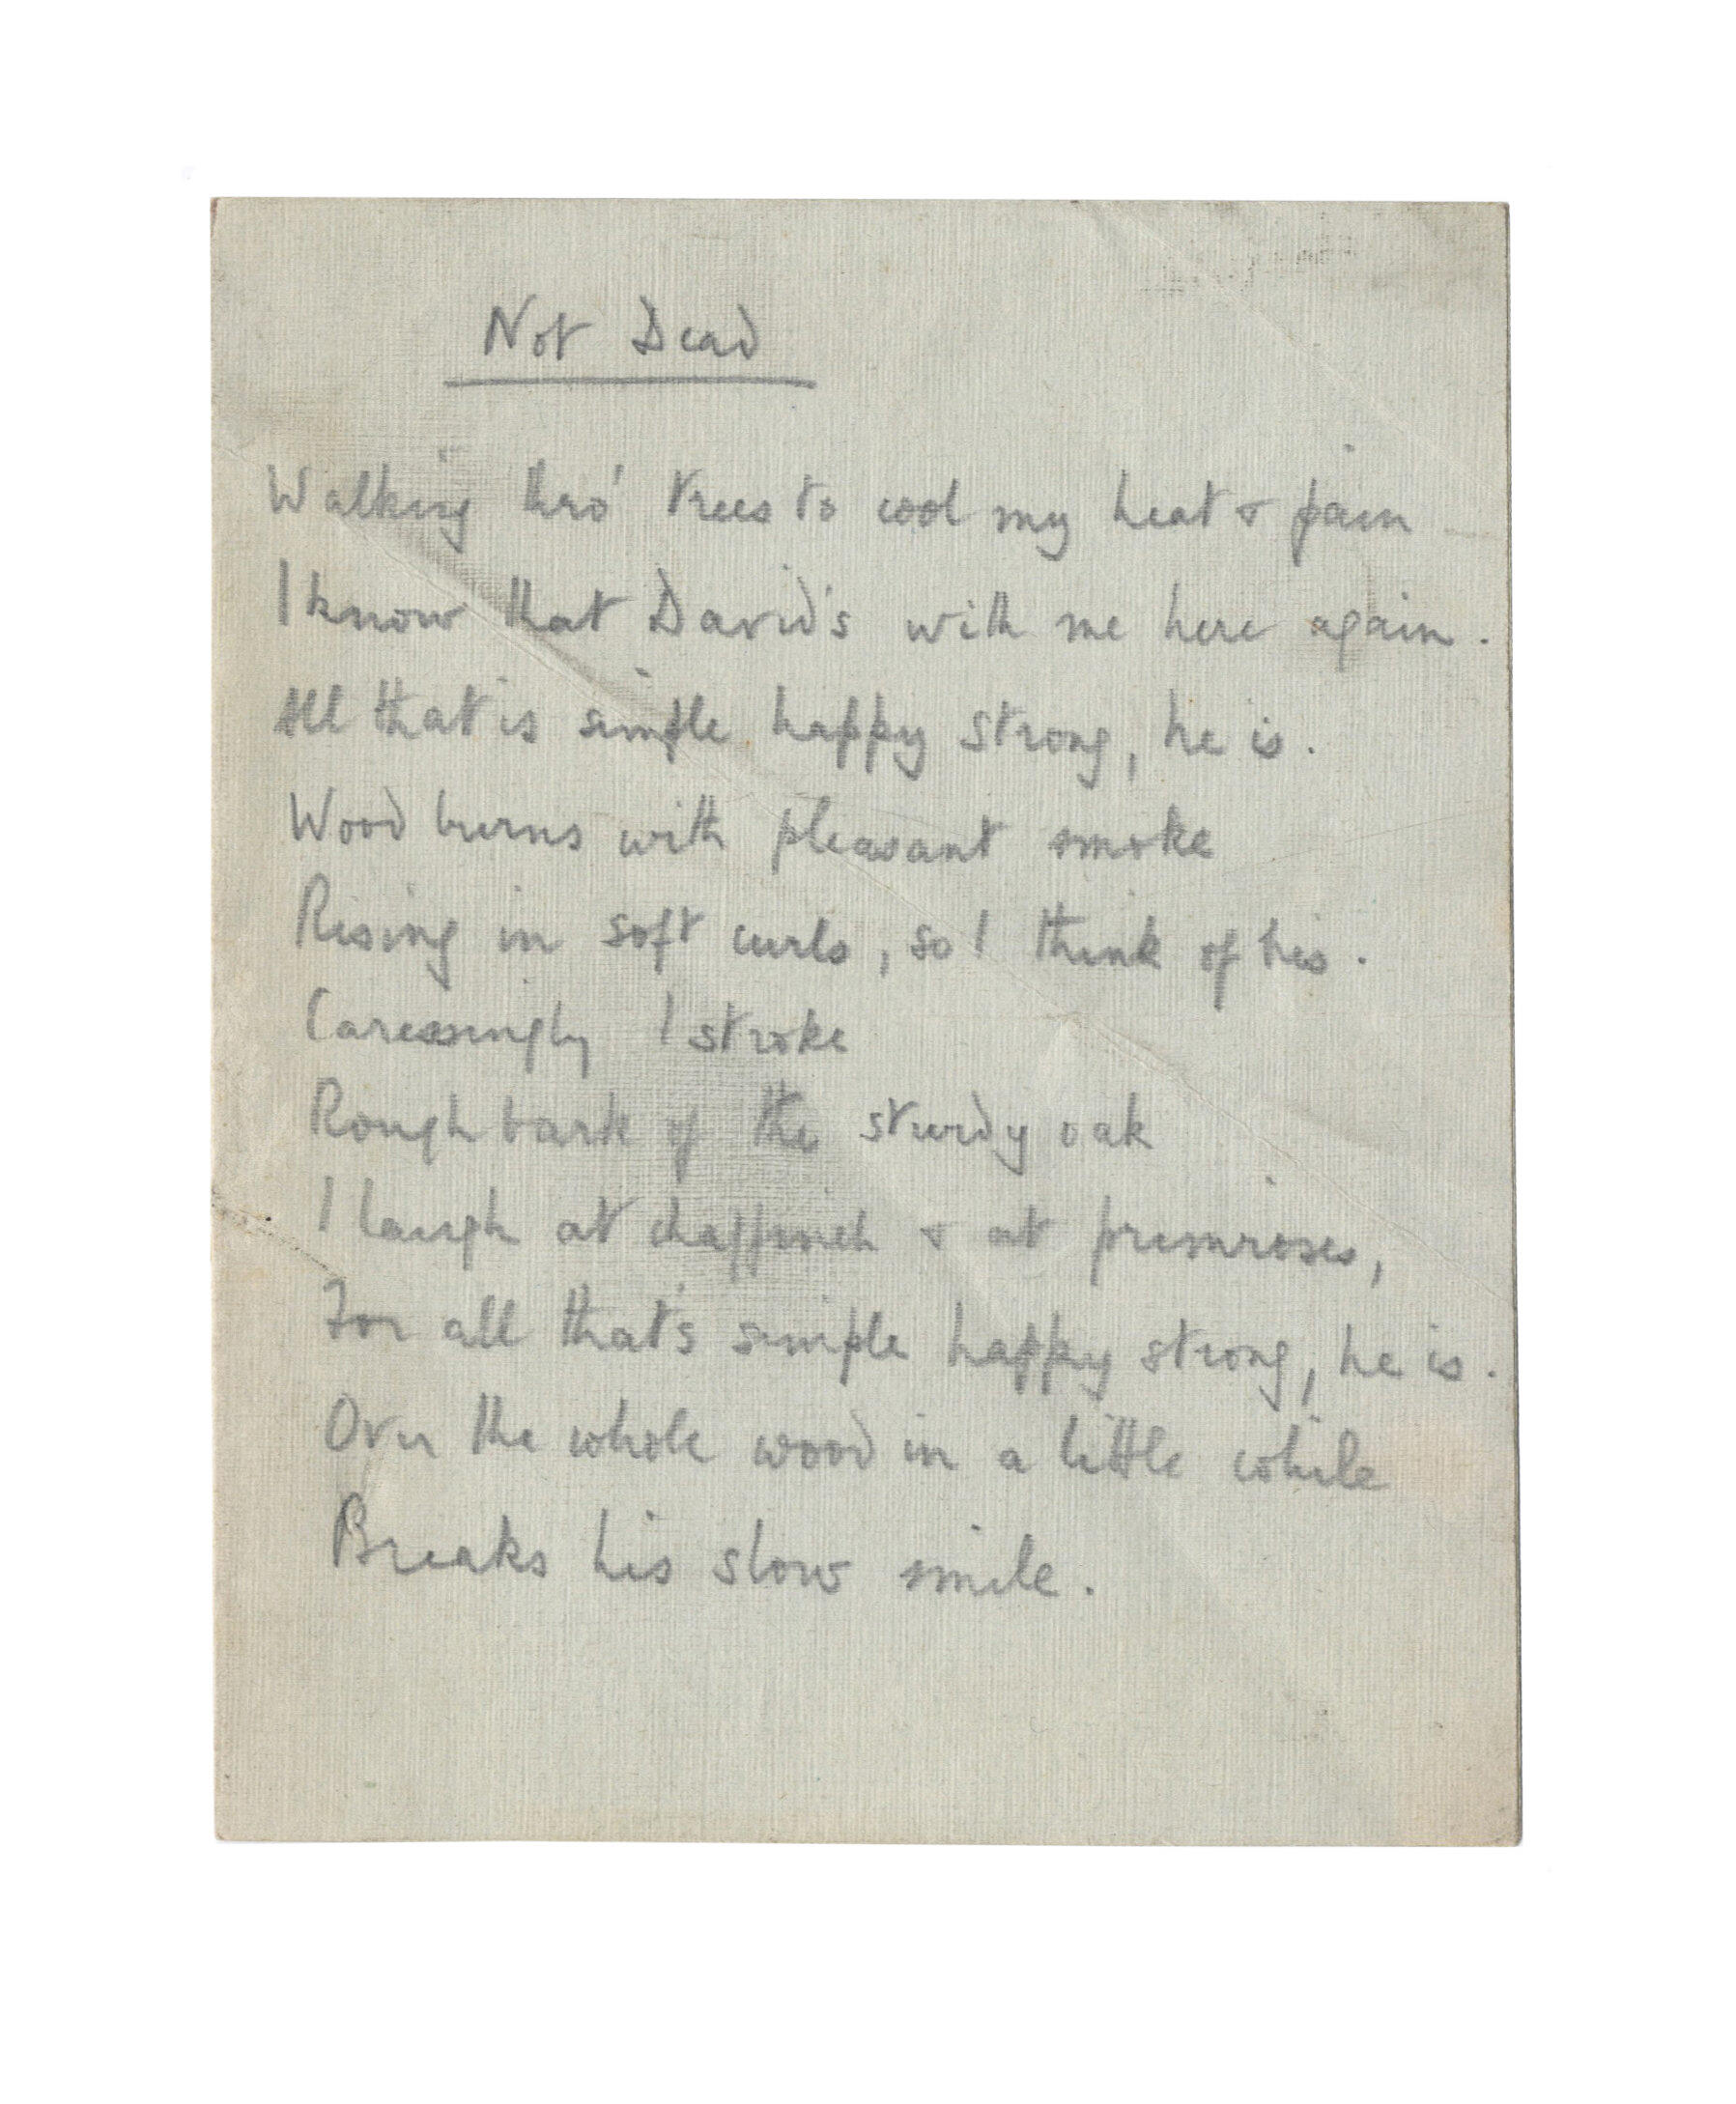 Not Dead
Walking thro' trees to cool my heat & pain
I know that David's with me here again.
All that is simple happy strong, he is.
Wood burns with pleasant smoke
Rising in soft curls, so I think of his.
Caressingly I stroke
Rough bark of the sturdy oak
I laugh at chaffinch & at primroses,
For all that's simple happy strong, he is.
Over the whole wood in a little while
Breaks his slow smile.